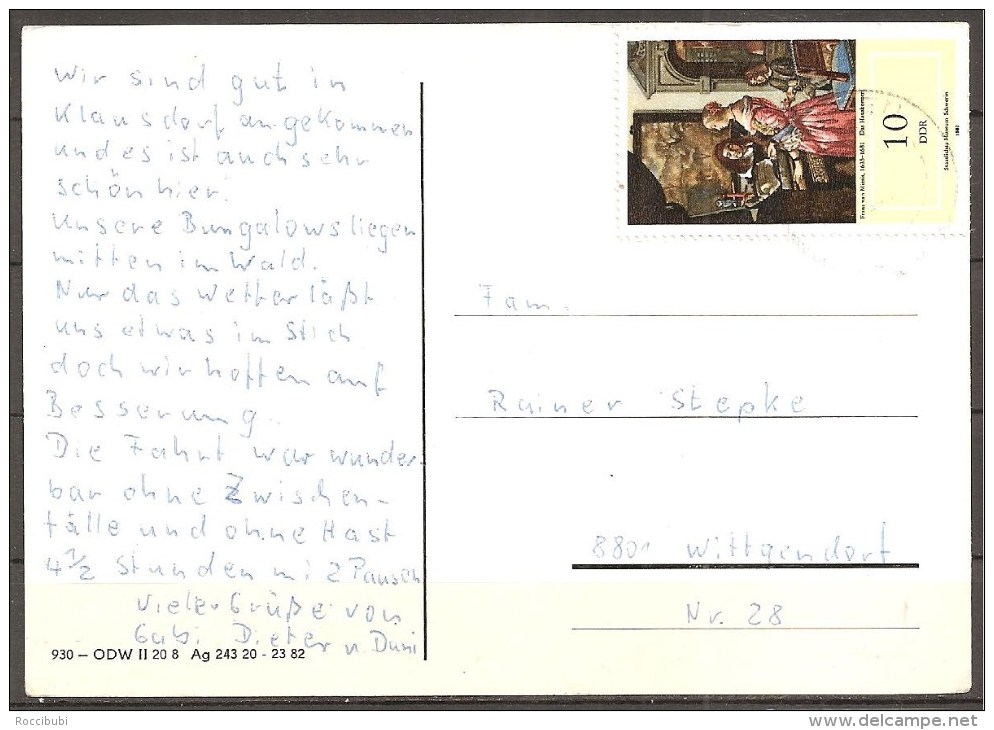 Wir sind gut in
Klausdorf angekommen
und es ist auch sehr
schön hier.
Unsere Bungalows liegen
mitten im Wald.
Nur das Wetter läßt
uns etwas im Stich
doch wir hoffen auf
Besserung.
Die Fahrt war wunder-
bar ohne Zwischen-
fälle und ohne Hast
4 1/2 Stunden mi 2 Pausen
Viele Grüße von
Gabi Dieter u.
930 — ODW II 20 8 Ag 243 20 - 23 82
Frans van Mieris, 1635–1681 Der
10
DDR
Staatliches Museum Schwerin
1982
Fam.
Rainer Stepke
8801 Wittgendorf
Nr. 28
Roccibubi
www.delcampe.net